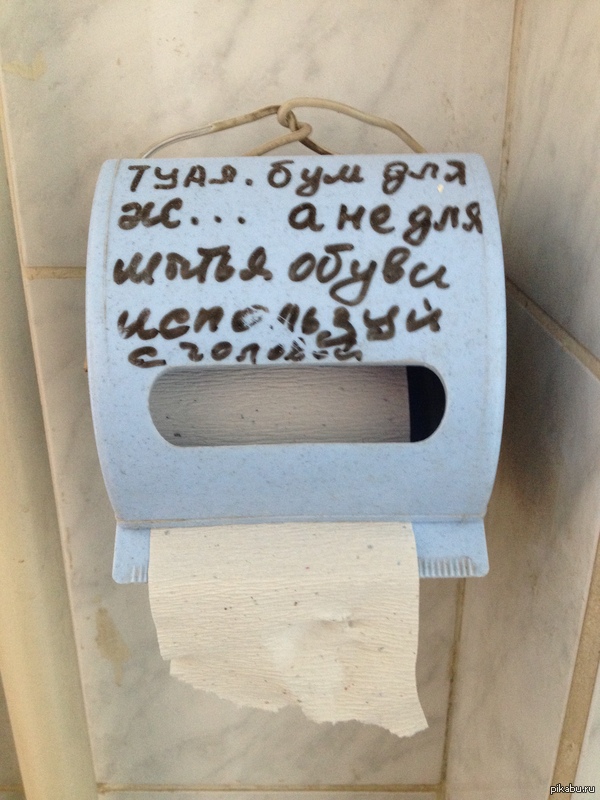 ТУАЛ. бум для
ж... а не для
мытья обуви
используй
с головой
pikabu.ru